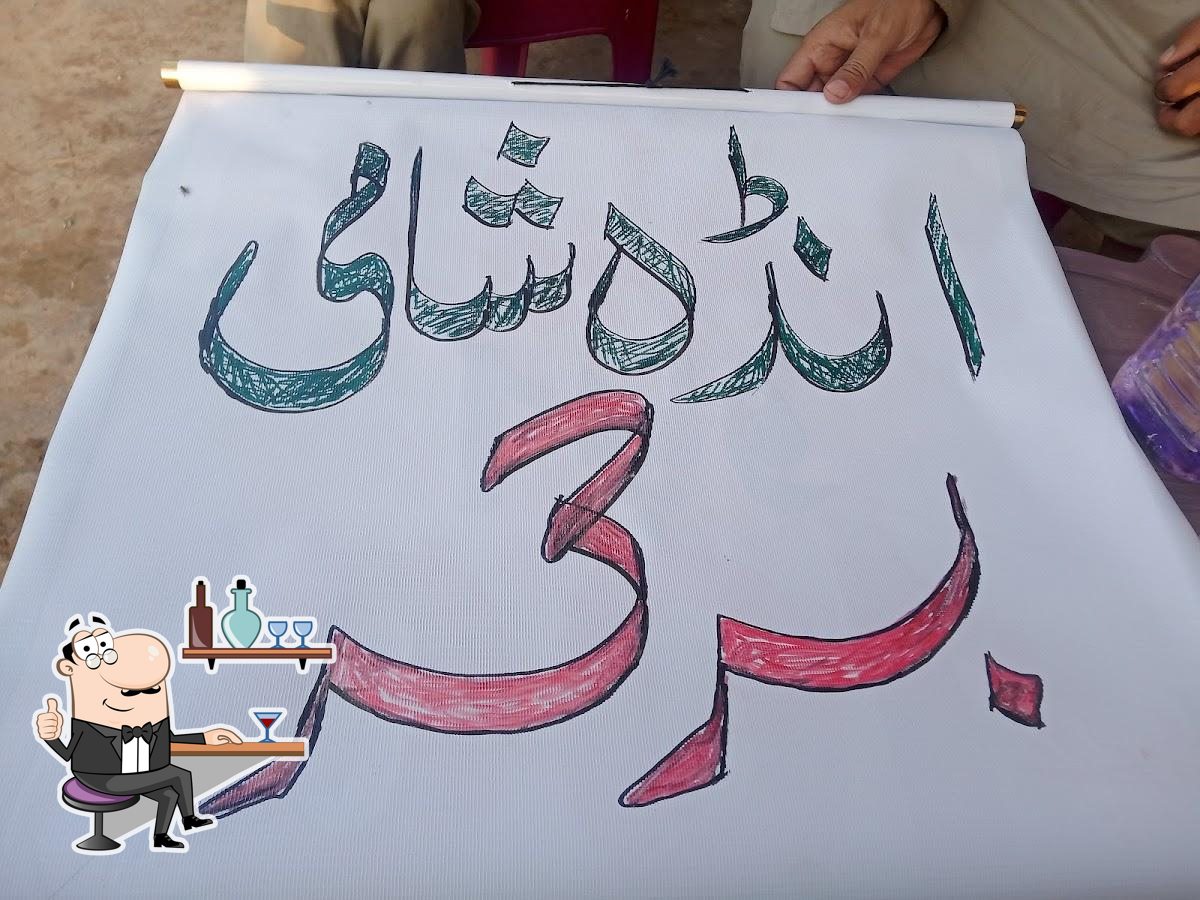 انڈہ شامی
برگر